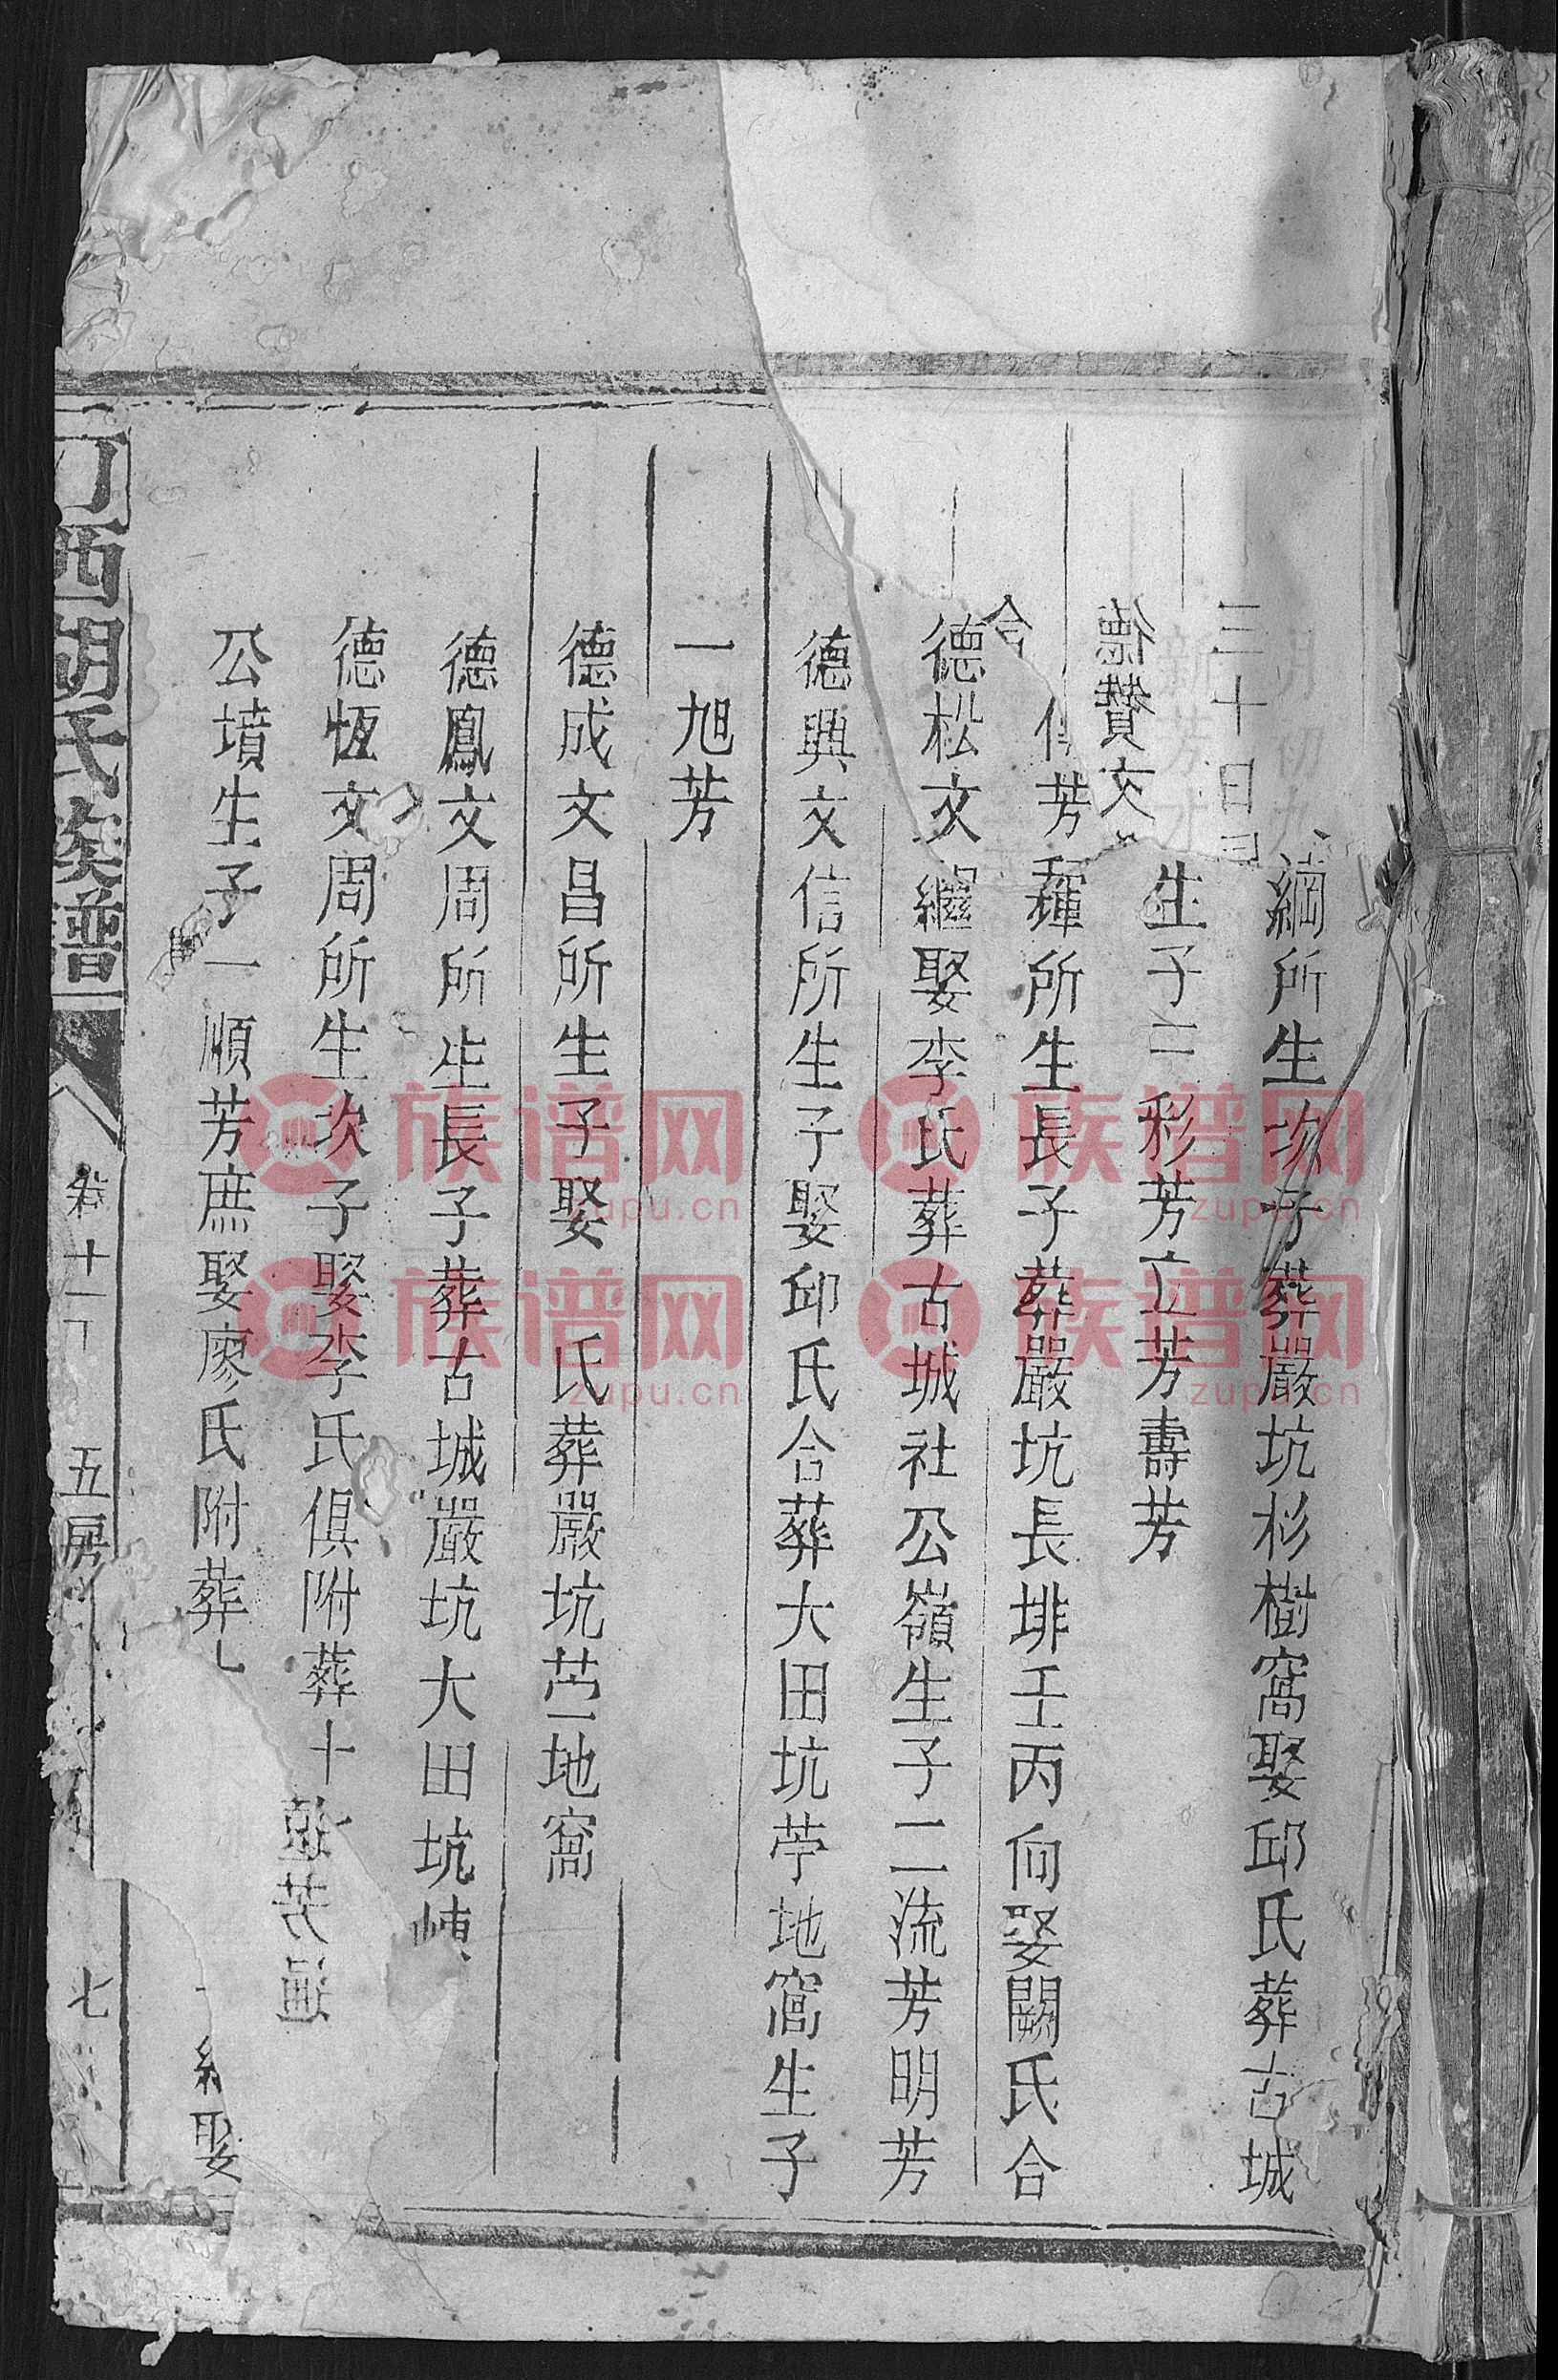 綱所生次子葬嚴坑杉樹窩娶邱氏葬古城
三十日
生子三彩芳立芳壽芳
德贊文
芳種所生長子葬嚴坑長排壬丙向娶闕氏合
德松文繼娶李氏葬古城社公嶺生子二流芳明芳
德興文信所生子娶邱氏合葬大田坑苧地窩生子
一旭芳
德成文昌所生子娶 氏葬嚴坑苧地窩
德鳳文周所生長子葬古城嚴坑大田坑
德恆文周所生次子娶李氏俱附葬十
芳通
公墳生子一順芳庶娶廖氏附葬
娶
汀西胡氏族譜 卷十一 五房 七
族谱网 zupu.cn
族谱网 zupu.cn
族谱网 zupu.cn
族谱网 zupu.cn